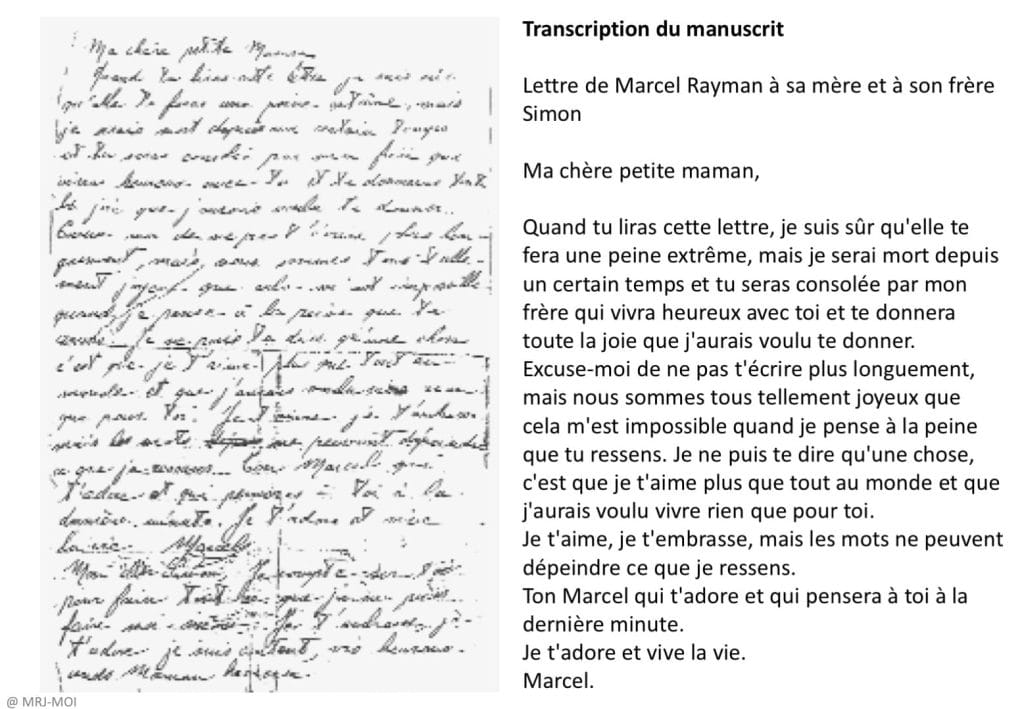 Ma chère petite Maman
Quand tu liras cette lettre je suis sûr
qu'elle te fera une peine extrême, mais
je serai mort depuis un certain temps
et tu seras consolée par mon frère qui
vivra heureux avec toi et te donnera toute
la joie que j'aurais voulu te donner.
Excuse moi de ne pas t'écrire plus lon-
guement, mais nous sommes tous telle-
ment joyeux que cela m'est impossible
quand je pense à la peine que tu
ressens. Je ne puis te dire qu'une chose
c'est que je t'aime plus que tout au
monde et que j'aurais voulu vivre rien
que pour toi. Je t'aime je t'embrasse
mais les mots ne peuvent dépeindre
ce que je ressens. Ton Marcel qui
t'adore et qui pensera à toi à la
dernière minute. Je t'adore et vive
la vie. Marcel
Mon Simon, Je compte sur toi
pour faire tout ce que je ne puis
faire Je t'embrasse, je
t'adore je suis content, vis heureux
rends Maman heureuse.
Transcription du manuscrit
Lettre de Marcel Rayman à sa mère et à son frère
Simon
Ma chère petite maman,
Quand tu liras cette lettre, je suis sûr qu'elle te
fera une peine extrême, mais je serai mort depuis
un certain temps et tu seras consolée par mon
frère qui vivra heureux avec toi et te donnera
toute la joie que j'aurais voulu te donner.
Excuse-moi de ne pas t'écrire plus longuement,
mais nous sommes tous tellement joyeux que
cela m'est impossible quand je pense à la peine
que tu ressens. Je ne puis te dire qu'une chose,
c'est que je t'aime plus que tout au monde et que
j'aurais voulu vivre rien que pour toi.
Je t'aime, je t'embrasse, mais les mots ne peuvent
dépeindre ce que je ressens.
Ton Marcel qui t'adore et qui pensera à toi à la
dernière minute.
Je t'adore et vive la vie.
Marcel.
@ MRJ-MOI